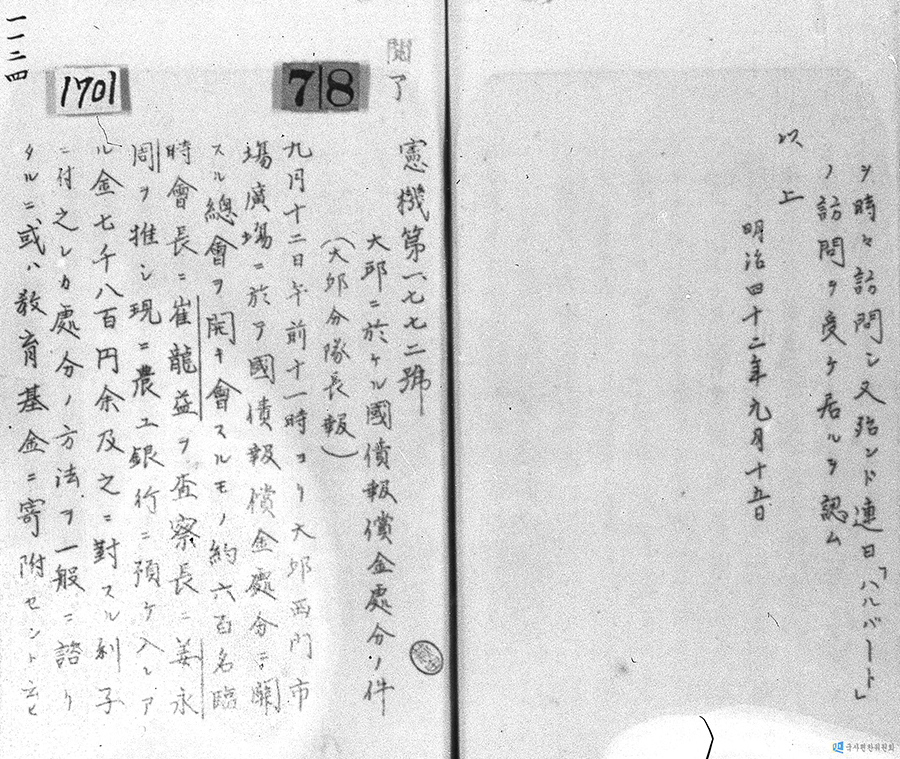 シ時々訪問シ又殆ンド連日「ハルバート」
ノ訪問ヲ受ケ居ルヲ認ム
以上
明治四十二年九月十五日
閲了
7|8
憲機第一七七二號
大邱ニ於ケル國債報償金處分ノ件
(大邱分隊長報)
九月十二日午前十一時ヨリ大邱西門市
場廣場ニ於テ國債報償金處分ニ關
スル總會ヲ開キ會スルモノ約六百名臨
時會長ニ崔龍益ヲ査察長ニ姜永
周ヲ推シ現ニ農工銀行ニ預ケ入レア
ル金七千八百円余及之ニ對スル利子
ニ付之レカ處分ノ方法ヲ一般ニ諮リ
タルニ或ハ敎育基金ニ寄附セント云ヒ
1701
一一二四
국사편찬위원회